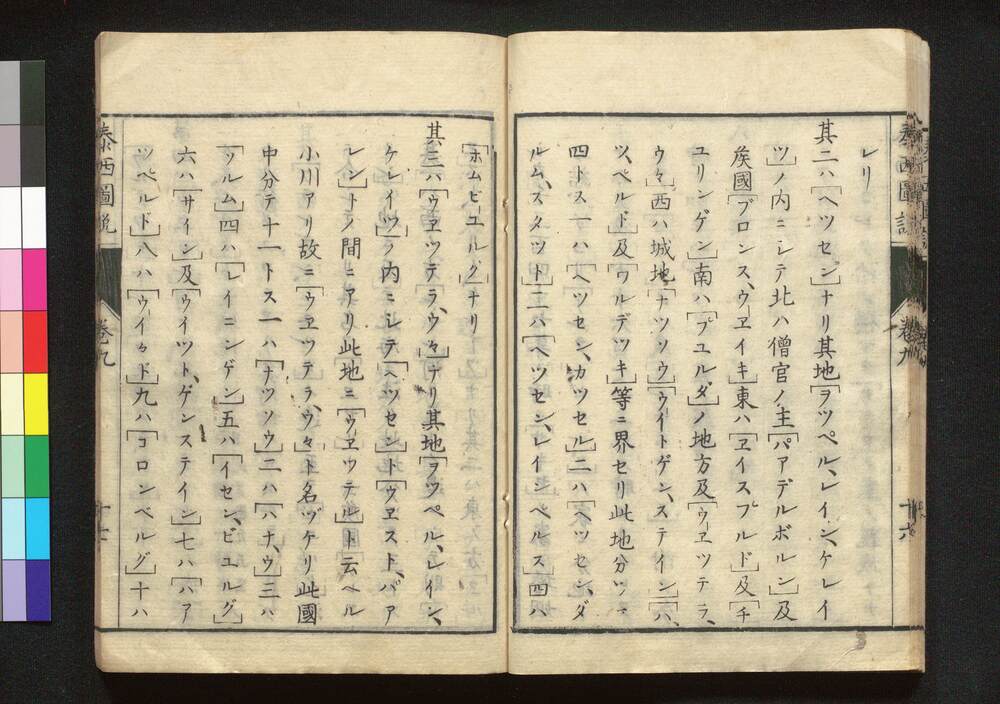 レリ
其二ハ「ヘツセン」ナリ其地「ヲツペル、レイン、ケレイ
ツ」ノ内ニシテ北ハ僧官ノ主「パアデルボルン」及
矦國「ブロンス、ウヱイキ東ハ「ヱイスフルド」及「チ
ユリンゲン」南ハ「フユルダ」ノ地方及「ウヱツテラ、
ウ々」西ハ城地「ナツソウ」「ウイトゲン、ステイン」「ハ、
ツ、ベルド」及「ワルデツキ」等ニ界セリ此地分ツテ
四トス一ハ「ヘツセン、カツセル」二ハ「ヘツセン、ダ
ルム、スタツト」三ハ「ヘツセン、レインヘルス」四ハ
「ホムビユルグ」ナリ
其三ハ「ウヱツテラ、ウ々」ナリ其地「ヲツペル、レイン、
ケレイツ」ノ内ニシテ「ヘツセン」ト「ウヱスト、パア
レン」トノ間ニアリ此地ニ「ウヱツテル」ト云ヘル
小川アリ故ニ「ウヱツテラ、ウ々」ト名ヅケリ此國
中分テ十一トス一ハ「ナツソウ」二ハ「ハナ、ウ」三ハ
「ソルム」四ハ「レイニンゲン」五ハ「イセン、ビユルグ」
六ハ「サイン」及「ウイツト、ゲンステイン」七ハ「ハア
ツベルド」八ハ「ウイ々ド」九ハ「コロンベルグ」十ハ
泰西圖説
卷九
十六
泰西圖説
卷九
十七